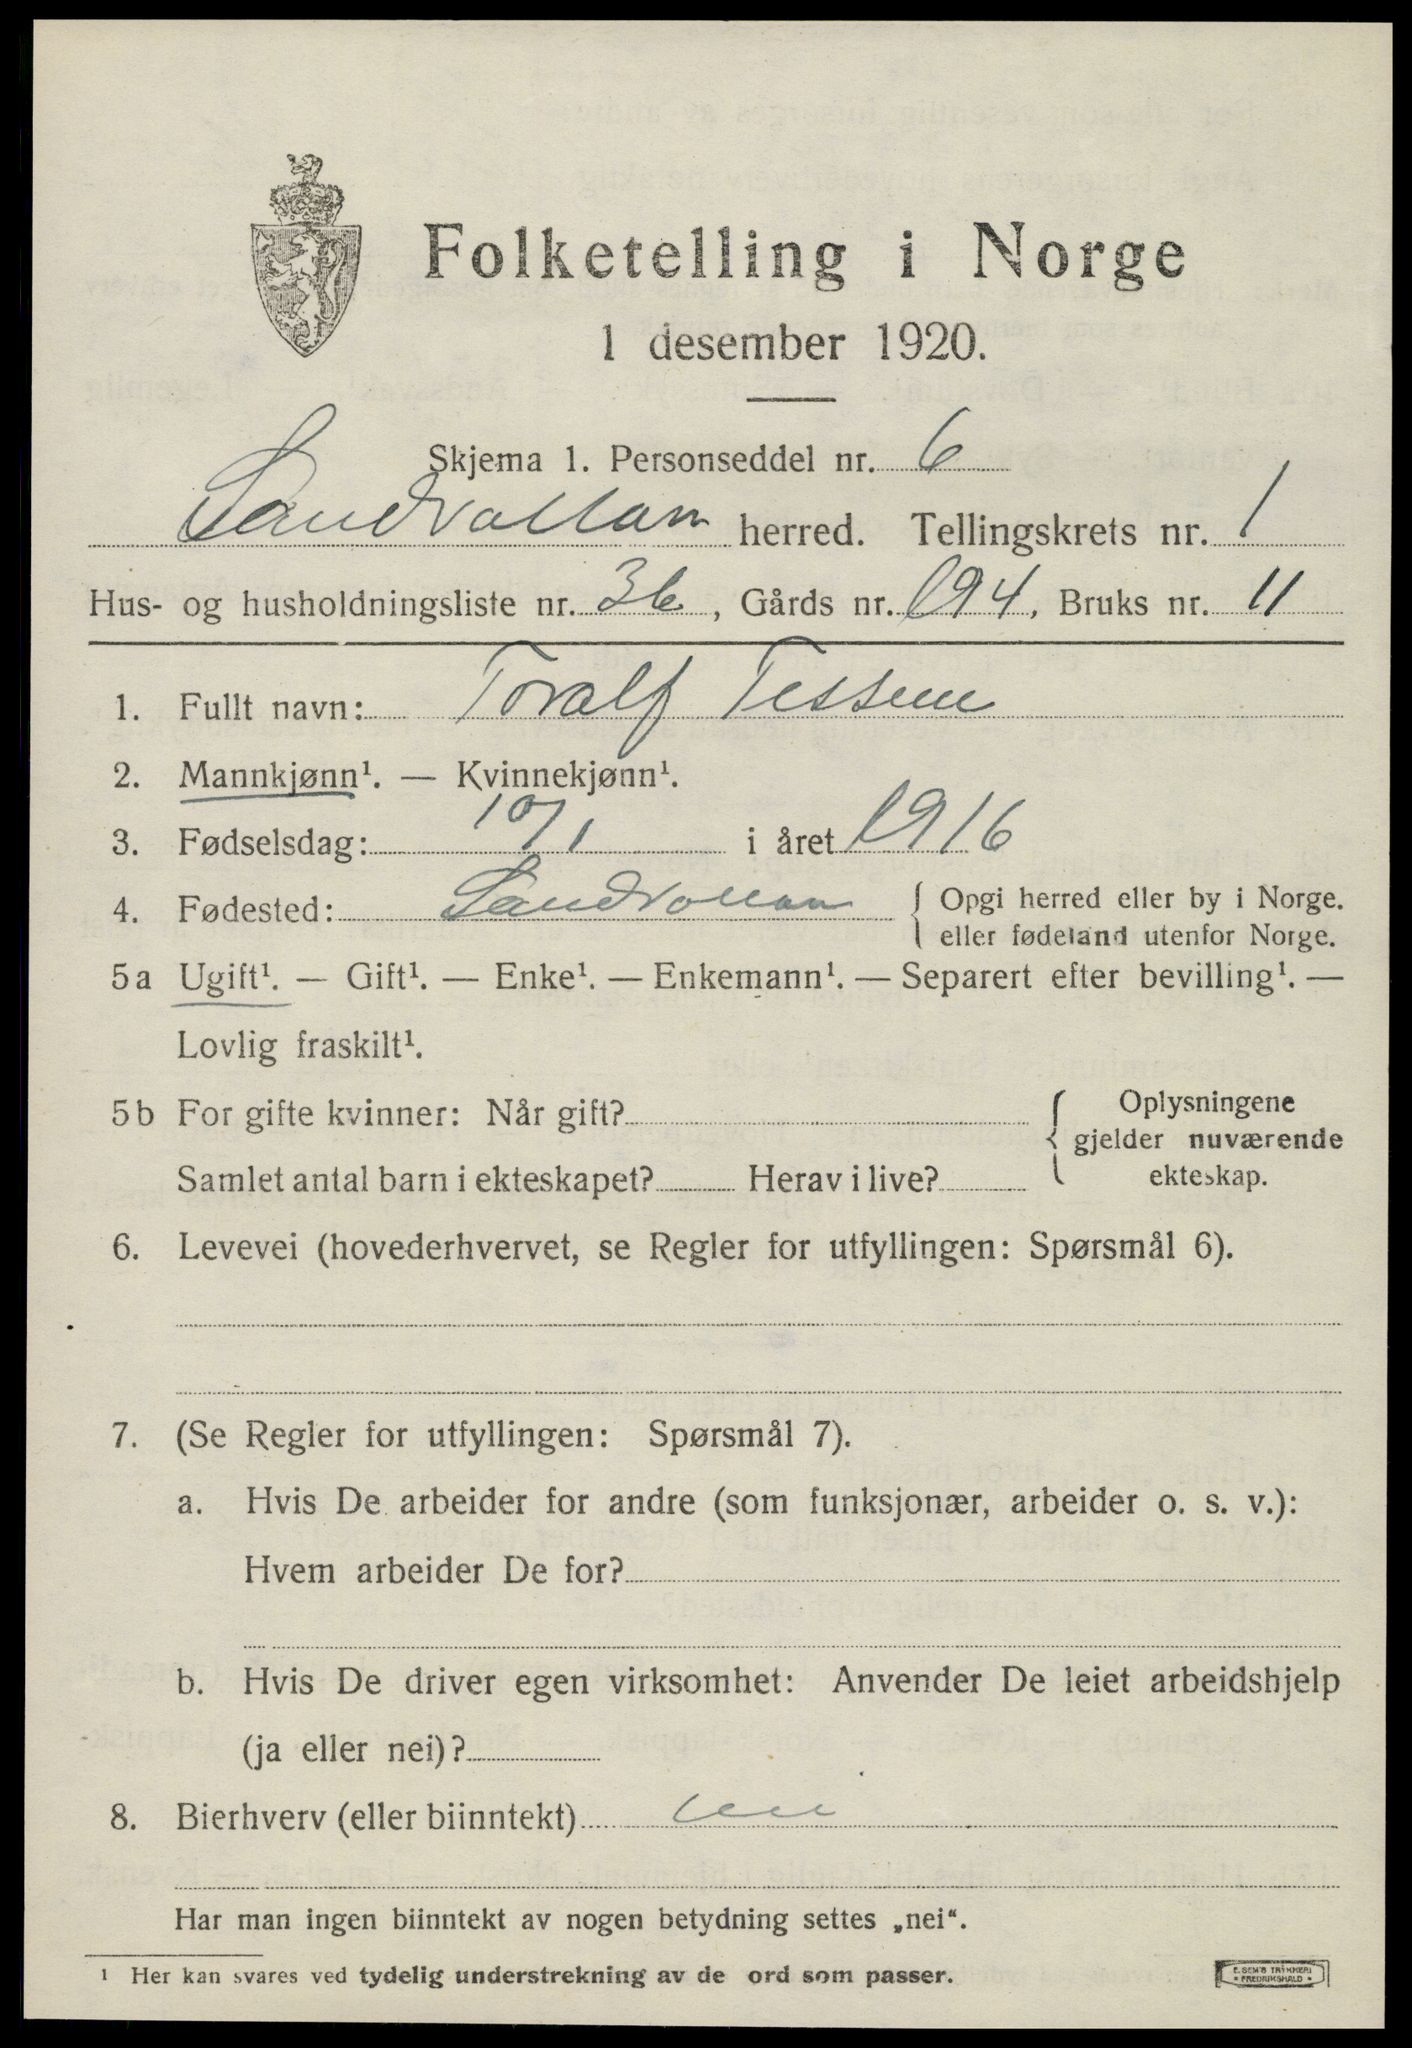 Folketelling i Norge
1 desember 1920.
Skjema 1. Personseddel nr. 6
Sandvollan herred. Tellingskrets nr. 1
Hus- og husholdningsliste nr. 36, Gårds nr. 194, Bruks nr. 11
1. Fullt navn: Toralf Tessem
2. Mannkjønn¹. — Kvinnekjønn¹.
3. Fødselsdag: 10/1 i året 1916
4. Fødested: Sandvollan { Opgi herred eller by i Norge.
eller fødeland utenfor Norge.
5a Ugift¹. — Gift¹. — Enke¹. — Enkemann¹. — Separert efter bevilling¹. —
Lovlig fraskilt¹.
5b For gifte kvinner: Når gift? { Oplysningene
gjelder nuværende
Samlet antal barn i ekteskapet? Herav i live? ekteskap.
6. Levevei (hovederhvervet, se Regler for utfyllingen: Spørsmål 6).
7. (Se Regler for utfyllingen: Spørsmål 7).
a. Hvis De arbeider for andre (som funksjonær, arbeider o. s. v.):
Hvem arbeider De for?
b. Hvis De driver egen virksomhet: Anvender De leiet arbeidshjelp
(ja eller nei)?
8. Bierhverv (eller biinntekt) nei
Har man ingen biinntekt av nogen betydning settes „nei“.
¹ Her kan svares ved tydelig understrekning av de ord som passer.
E. SEM'S TRYKKERI
• FREDRIKSHALD •